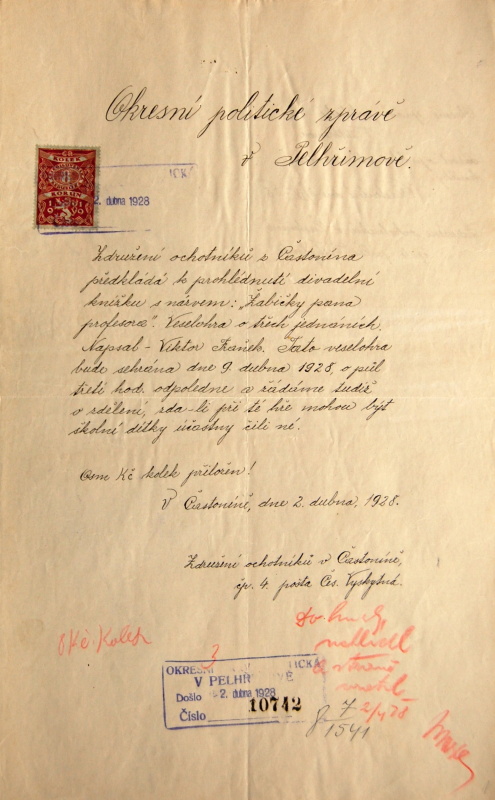 Okresní politické zprávě
v Pelhřimově.
KOLEK
KORUN
2. dubna 1928
Združení ochotníků z Častonína
předkládá k prohlédnutí divadelní
knížku s názvem: „Žabičky pana
profesora". Veselohra o třech jednáních.
Napsal - Viktor Traněk. Tato veselohra
bude sehrána dne 9. dubna 1928, o půl
třetí hod. odpoledne a žádáme tudíž
o zdělení, zda-li při té hře mohou být
školní dítky účastny čili né.
Osm Kč kolek přiložen!
V Častoníně, dne 2. dubna, 1928.
Združení ochotníků v Častoníně,
čp. 4. pošta Čes. Vyskytná.
8 Kč. Kolek
3
nahlédl
a
vrátil
2/4 28
OKRESNÍ POLITICKÁ
V PELHŘIMOVĚ
Došlo 2. dubna 1928
Číslo 10742
7
1541